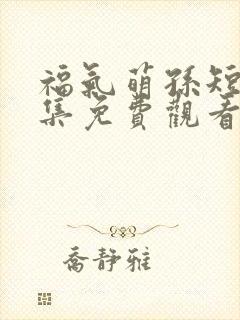 福氣萌孫短
集免費觀看
喬靜雅